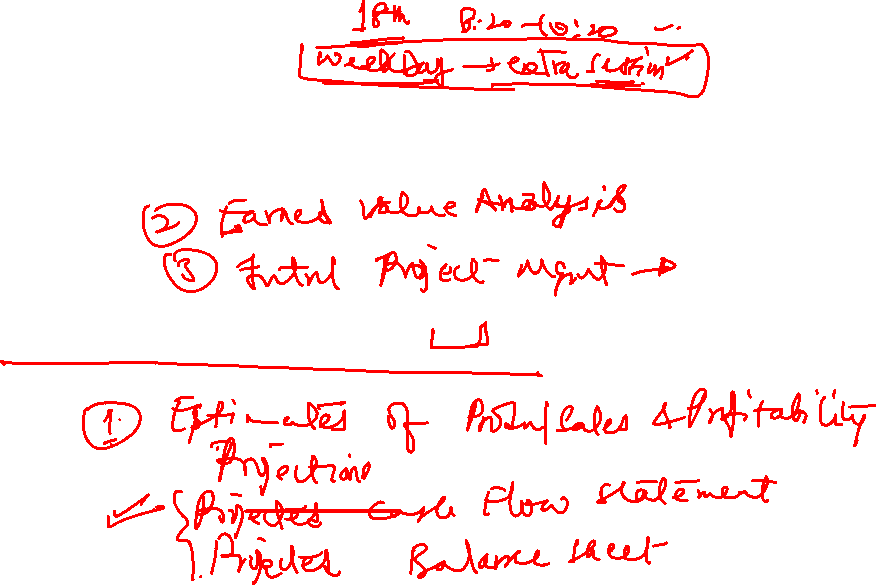 18th 8:20 - 10:20
weekday → extra session
② Earned Value Analysis
③ Intnl Project Mgmt →
① Estimates of Prodn/Sales & Profitability
Projections
Projected Cash Flow Statement
Projected Balance sheet